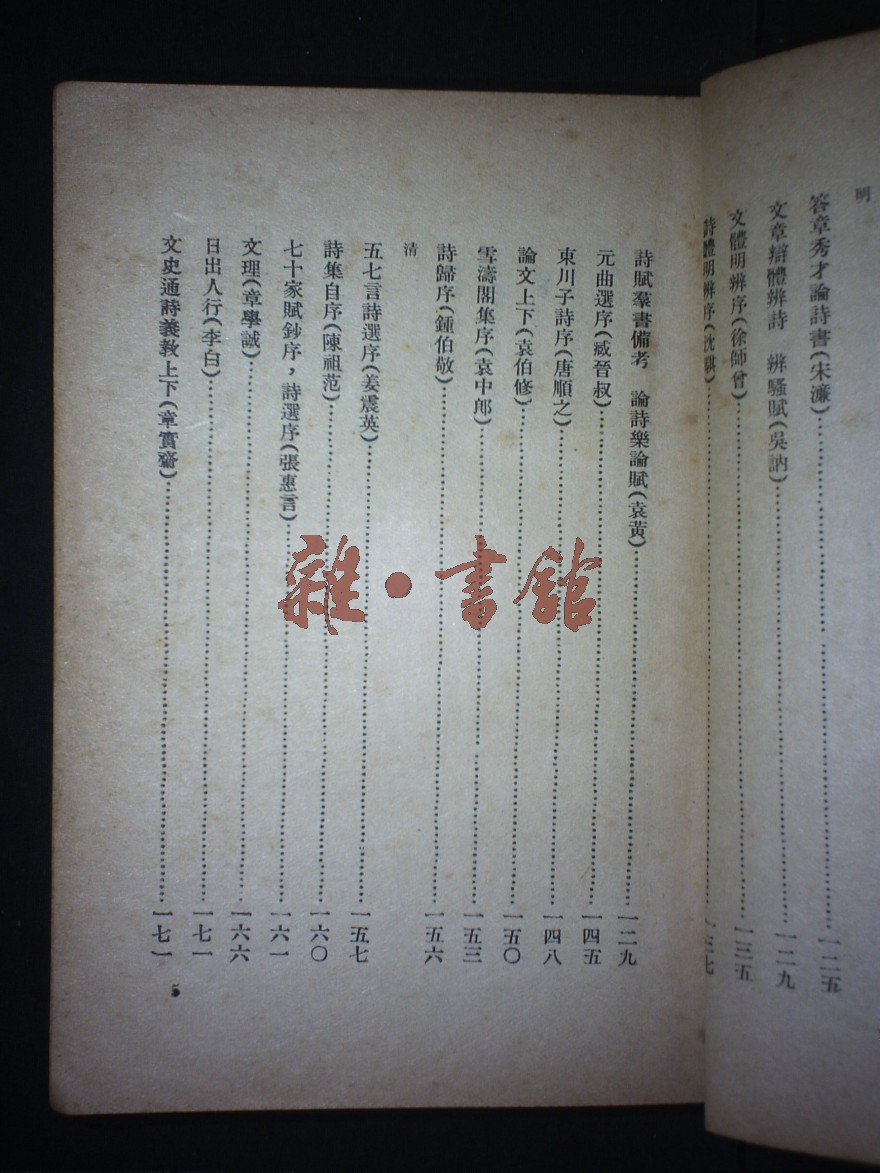 明
答章秀才論詩書(宋濂)……一二五
文章辯體辨詩　辨騷賦(吳訥)……一二九
文體明辨序(徐師曾)……一三五
詩體明辨序(沈騏)……一三七
詩賦羣書備考　論詩樂論賦(袁黃)……一二九
元曲選序(臧晉叔)……一四五
東川子詩序(唐順之)……一四八
論文上下(袁伯修)……一五〇
雪濤閣集序(袁中郎)……一五三
詩歸序(鍾伯敬)……一五六
清
五七言詩選序(姜震英)……一五七
詩集自序(陳祖范)……一六〇
七十家賦鈔序，詩選序(張惠言)……一六一
文理(章學誠)……一六六
日出人行(李白)……一七一
文史通詩義教上下(章實齋)……一七一
5
雜·書館